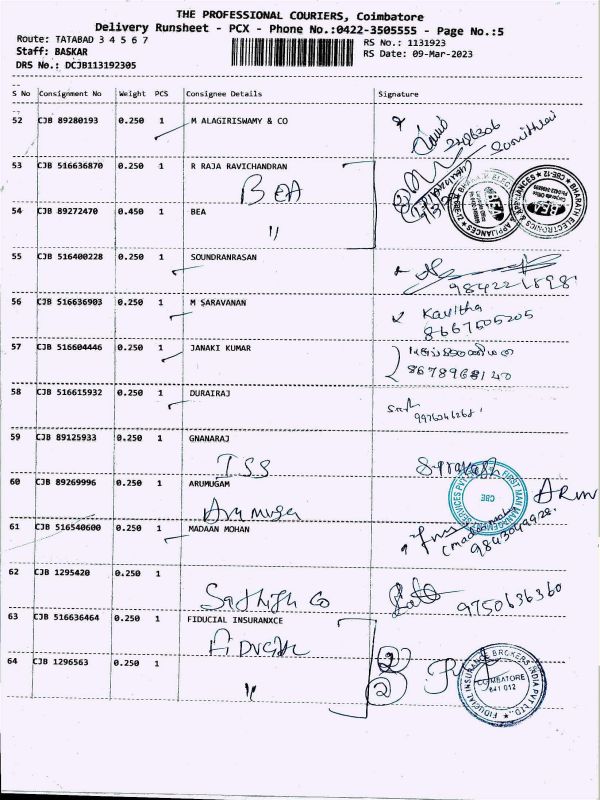 THE PROFESSIONAL COURIERS, Coimbatore
Delivery Runsheet - PCX - Phone No.:0422-3505555 - Page No.:5
Route: TATABAD 3 4 5 6 7
RS No.: 1131923
Staff: BASKAR
RS Date: 09-Mar-2023
DRS No.: DCJB113192305
S No Consignment No Weight PCS Consignee Details Signature
52 CJB 89280193 0.250 1 M ALAGIRISWAMY & CO
53 CJB 516636870 0.250 1 R RAJA RAVICHANDRAN
BEA
54 CJB 89272470 0.450 1 BEA
"
BHARATH ELECTRONICS & APPLIANCES
BEA
CBE-12
55 CJB 516400228 0.250 1 SOUNDRANRASAN
56 CJB 516636903 0.250 1 M SARAVANAN
Kavitha
8667505205
57 CJB 516604446 0.250 1 JANAKI KUMAR
58 CJB 516615932 0.250 1 DURAIRAJ
59 CJB 89125933 0.250 1 GNANARAJ
ISS
60 CJB 89269996 0.250 1 ARUMUGAM
Arumuga
FIRST MAN MANAGEMENT SERVICES PVT
CBE
61 CJB 516540600 0.250 1 MADAAN MOHAN
62 CJB 1295420 0.250 1
Sathish Co
9750636360
63 CJB 516636464 0.250 1 FIDUCIAL INSURANXCE
Fiducial
64 CJB 1296563 0.250 1
"
2
2
FIDUCIAL INSURANCE BROKERS INDIA PVT LTD.,
COIMBATORE
641 012